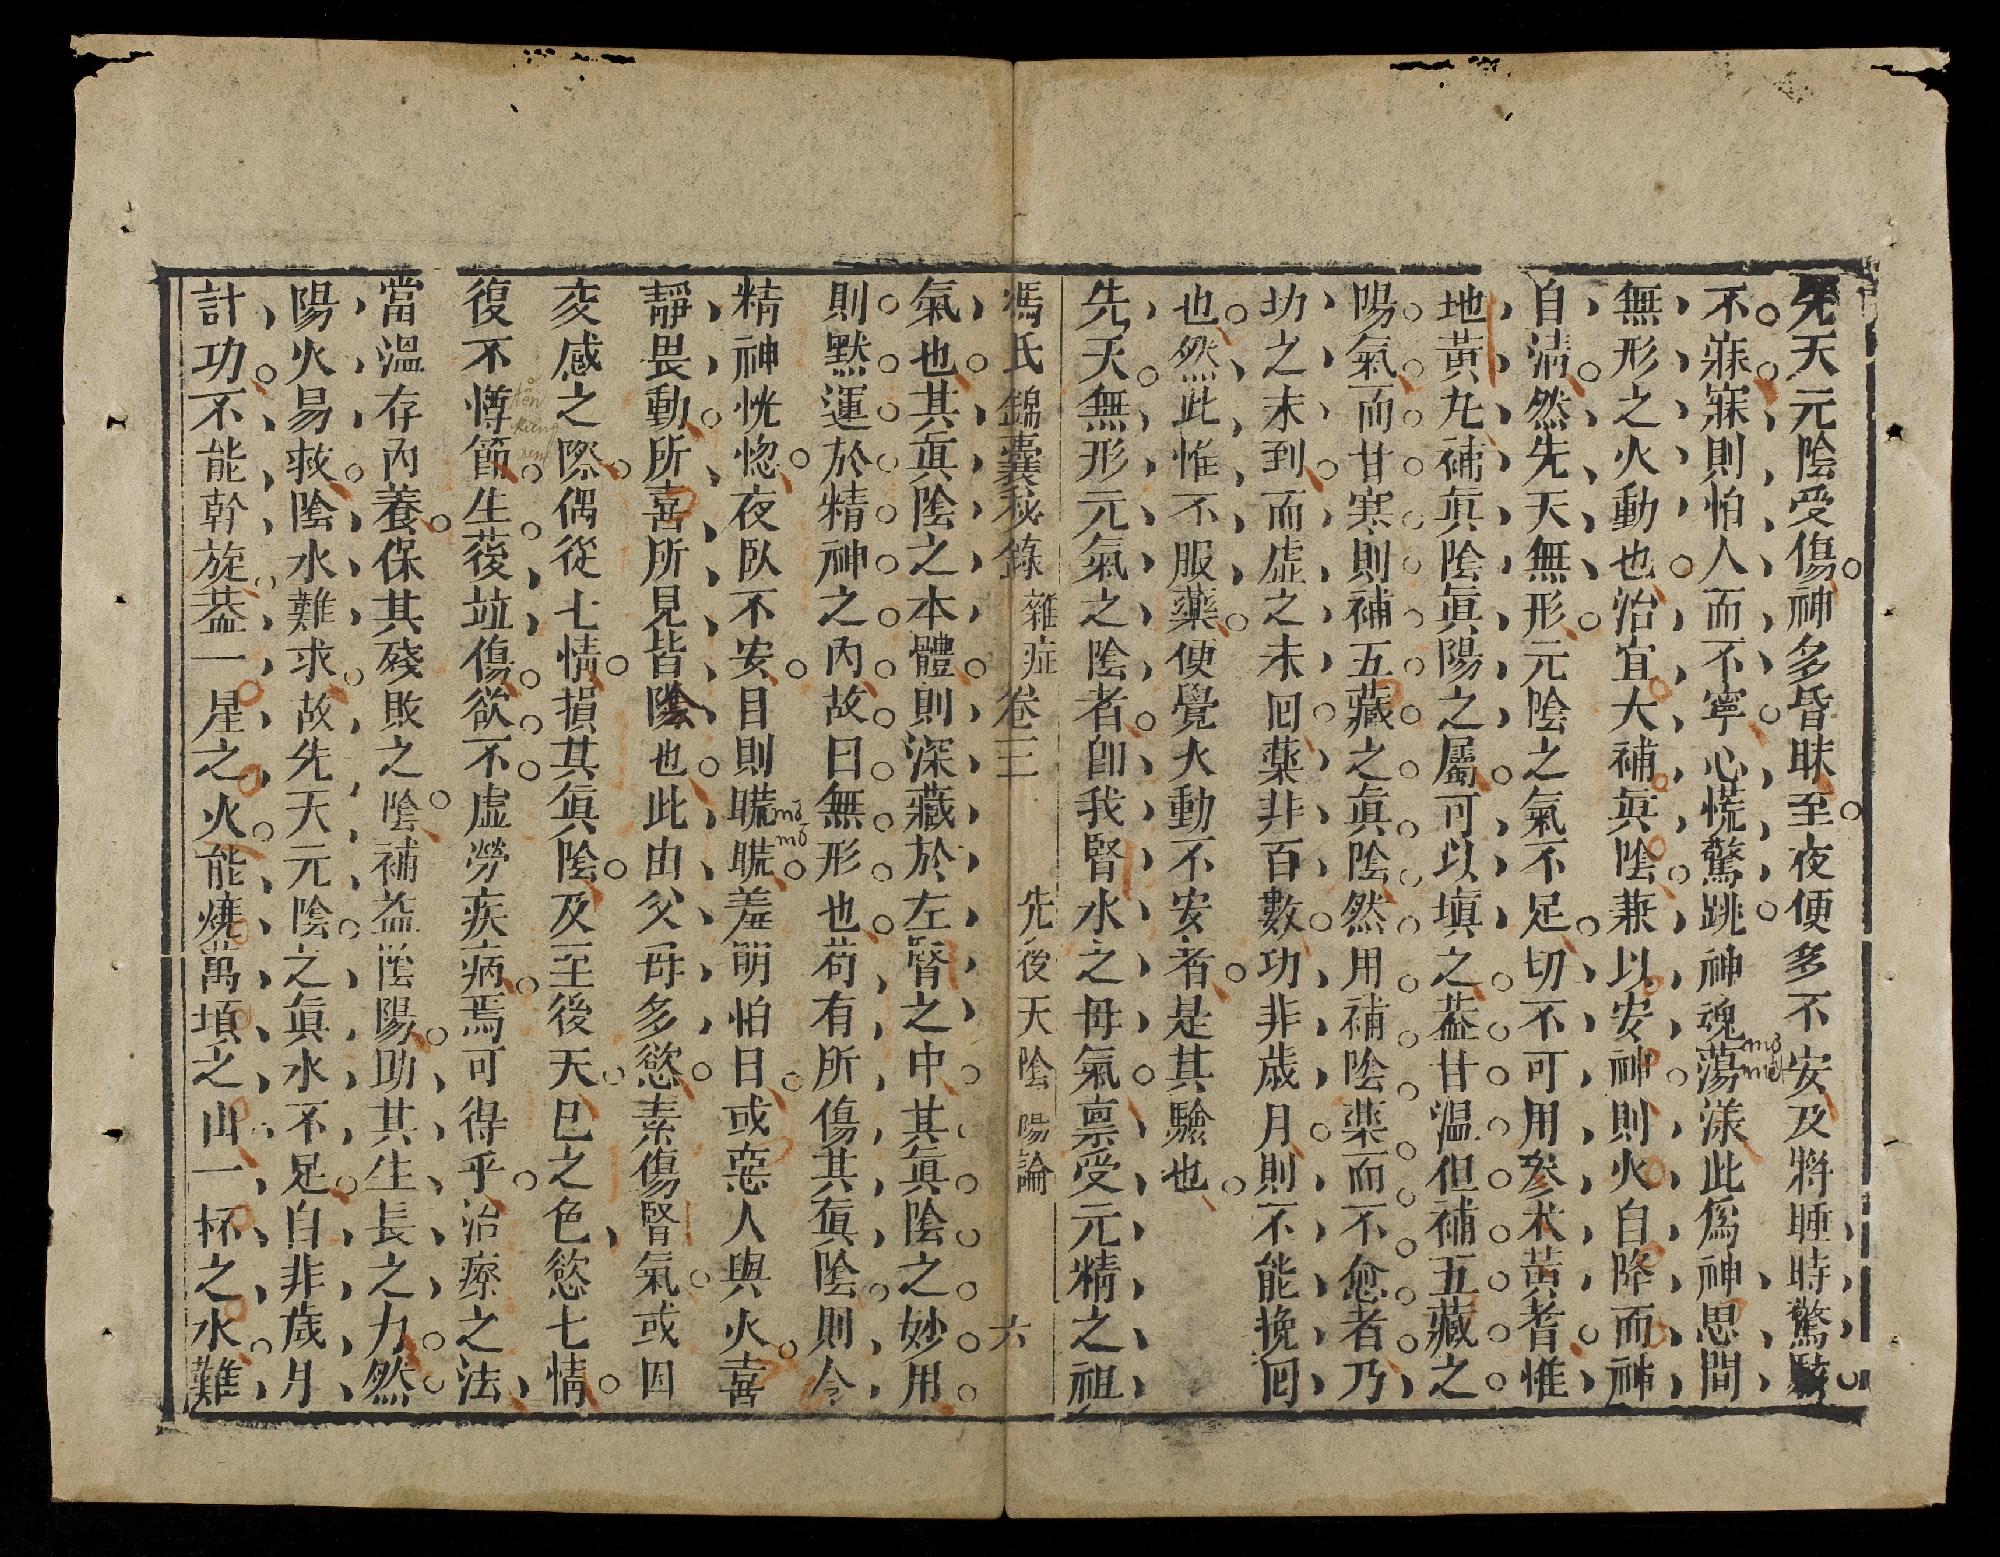 先天元陰受傷神多昏昧至夜便多不安及將睡時驚駭
不寐寐則怕人而不寧心慌驚跳神魂蕩漾此爲神思間
無形之火動也治宜大補眞陰兼以安神則火自降而神
自淸然先天無形元陰之氣不足切不可用參朮黃耆惟
地黃丸補眞陰眞陽之屬可以塡之葢甘溫但補五藏之
陽氣而甘寒則補五藏之眞陰然用補陰藥而不愈者乃
功之未到而虛之未囘藥非百數功非歲月則不能挽囘
也然此惟不服藥便覺火動不安者是其驗也
先天無形元氣之陰者卽我腎水之母氣禀受元精之祖
馮氏錦囊秘錄 雜症 卷三 先後天陰陽論 六
氣也其眞陰之本體則深藏於左腎之中其眞陰之妙用
則默運於精神之內故曰無形也苟有所傷其眞陰則令
精神恍惚夜臥不安目則䀮䀮羞明怕日或惡人與火喜
mờ mờ
靜畏動所喜所見皆陰也此由父母多慾素傷腎氣或因
交感之際偶從七情損其眞陰及至後天巳之色慾七情
復不撙節生葠竝傷欲不虛勞疾病焉可得乎治療之法
當溫存內養保其殘敗之陰補益陰陽助其生長之力然
陽火易救陰水難求故先天元陰之眞水不足自非歲月
計功不能幹旋葢一星之火能燒萬頃之山一杯之水難